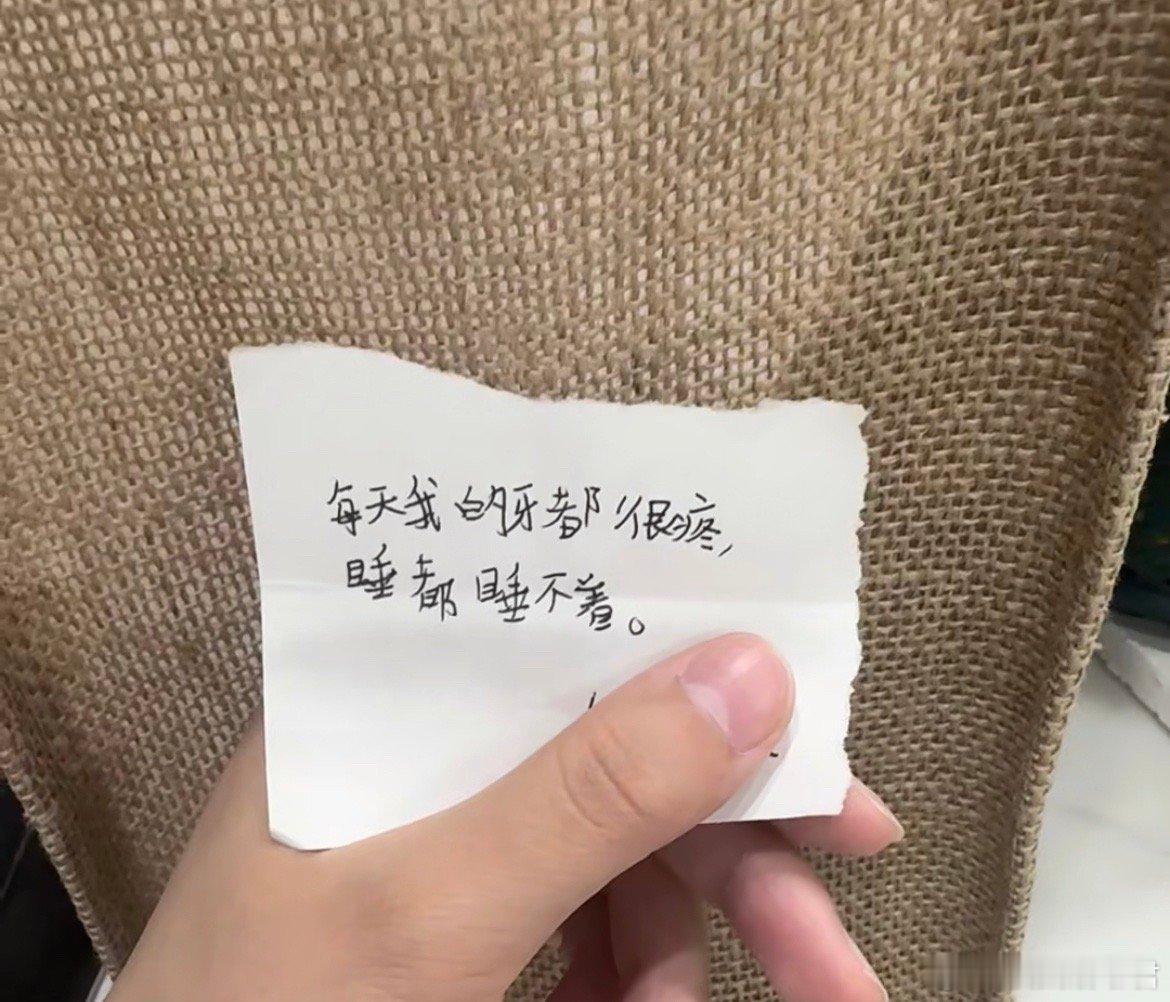 每天我的牙都很疼,
睡都睡不着。